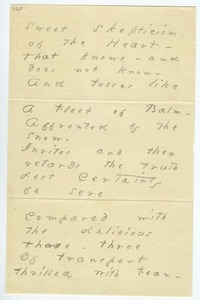 Sweet Skepticism
of the Heart -
That knows - and
does not know -
And tosses like
A Fleet of Balm -
Affronted by the
snow -
Invites and then
retards the truth
Lest Certainty
be sere
Compared with
the delicious
throe
Of transport
thrilled with Fear -